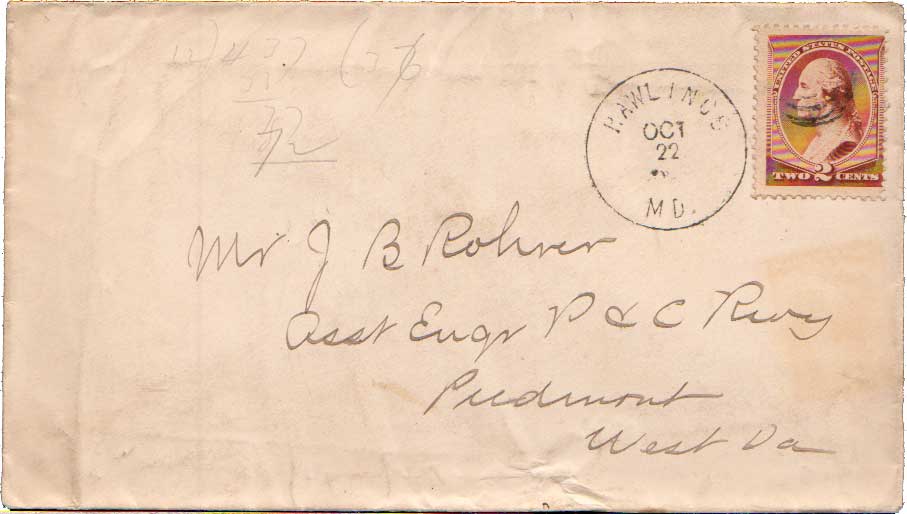 UNITED STATES POSTAGE
TWO 2 CENTS
RAWLINGS
OCT
22
MD.
12) 437 (36
Mr J B Rohrer
Asst Engr P & C Rwy
Piedmont
West Va